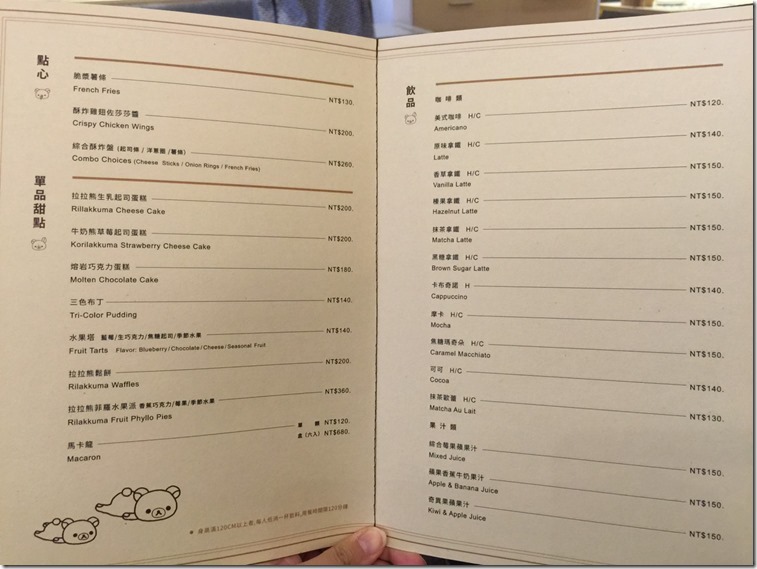 點心
脆漿薯條 NT$130.
French Fries
酥炸雞翅佐莎莎醬 NT$200.
Crispy Chicken Wings
綜合酥炸盤 (起司條 / 洋蔥圈 / 薯條) NT$260.
Combo Choices (Cheese Sticks / Onion Rings / French Fries)
單品甜點
拉拉熊生乳起司蛋糕 NT$200.
Rillakkuma Cheese Cake
牛奶熊草莓起司蛋糕 NT$200.
Korilakkuma Strawberry Cheese Cake
熔岩巧克力蛋糕 NT$180.
Molten Chocolate Cake
三色布丁 NT$140.
Tri-Color Pudding
水果塔 藍莓/生巧克力/焦糖起司/季節水果 NT$140.
Fruit Tarts Flavor: Blueberry/Chocolate/Cheese/Seasonal Fruit
拉拉熊鬆餅 NT$200.
Rilakkuma Waffles
拉拉熊菲羅水果派 香蕉巧克力/莓果/季節水果 NT$360.
Rilakkuma Fruit Phyllo Pies
馬卡龍 單顆 NT$120.
盒(六入) NT$680.
Macaron
* 身高滿120CM以上者,每人低消一杯飲料,用餐時間限120分鐘
飲品
咖啡類
美式咖啡 H/C NT$120.
Americano
原味拿鐵 H/C NT$140.
Latte
香草拿鐵 H/C NT$150.
Vanilla Latte
榛果拿鐵 H/C NT$150.
Hazelnut Latte
抹茶拿鐵 H/C NT$150.
Matcha Latte
黑糖拿鐵 H/C NT$150.
Brown Sugar Latte
卡布奇諾 H NT$140.
Cappuccino
摩卡 H/C NT$150.
Mocha
焦糖瑪奇朵 H/C NT$150.
Caramel Macchiato
可可 H/C NT$140.
Cocoa
抹茶歐蕾 H/C NT$130.
Matcha Au Lait
果汁類
綜合莓果蘋果汁 NT$150.
Mixed Juice
蘋果香蕉牛奶果汁 NT$150.
Apple & Banana Juice
奇異果蘋果汁 NT$150.
Kiwi & Apple Juice